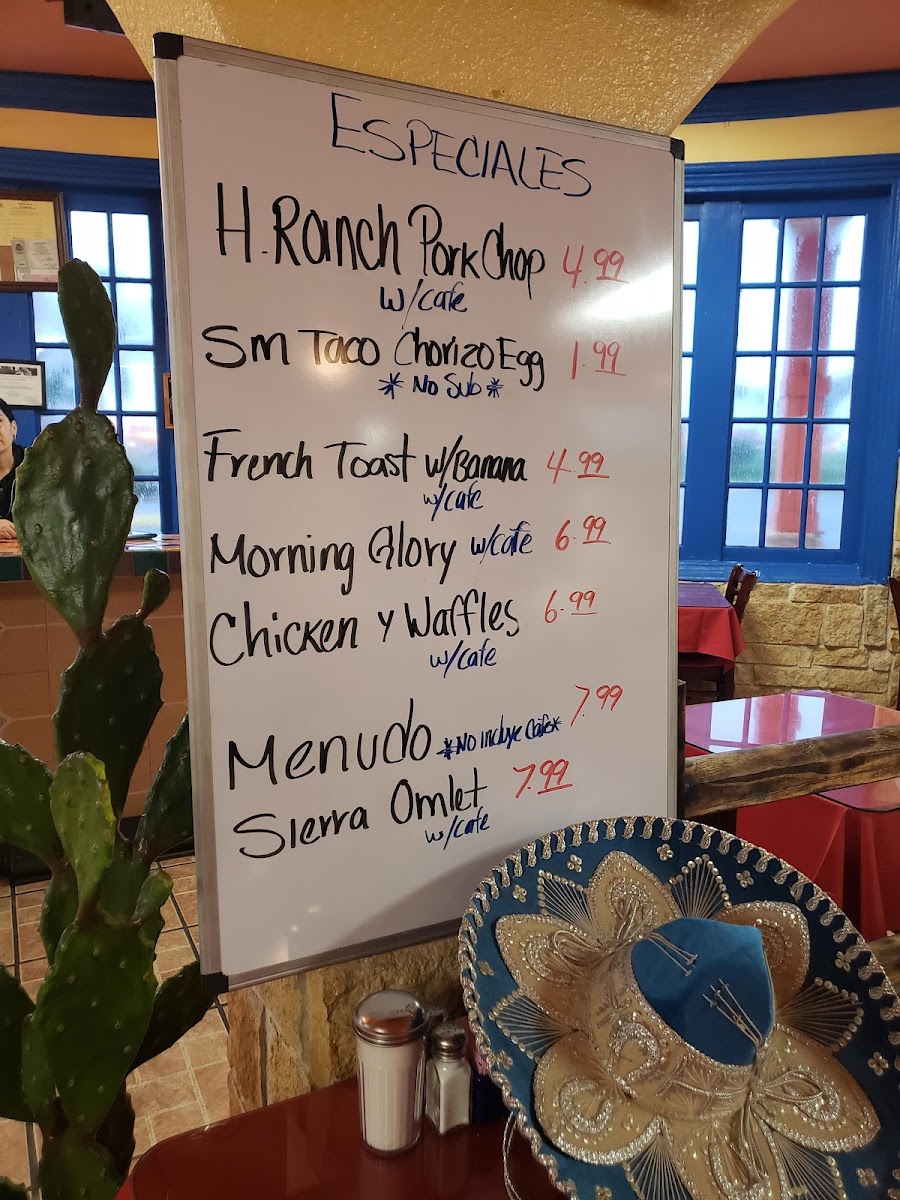 ESPECIALES
H. Ranch Pork Chop 4.99
w/cafe
Sm Taco Chorizo Egg 1.99
* No Sub *
French Toast w/Banana 4.99
w/cafe
Morning Glory w/cafe 6.99
Chicken y Waffles 6.99
w/cafe
Menudo *No Incluye Cafe* 7.99
Sierra Omlet 7.99
w/cafe